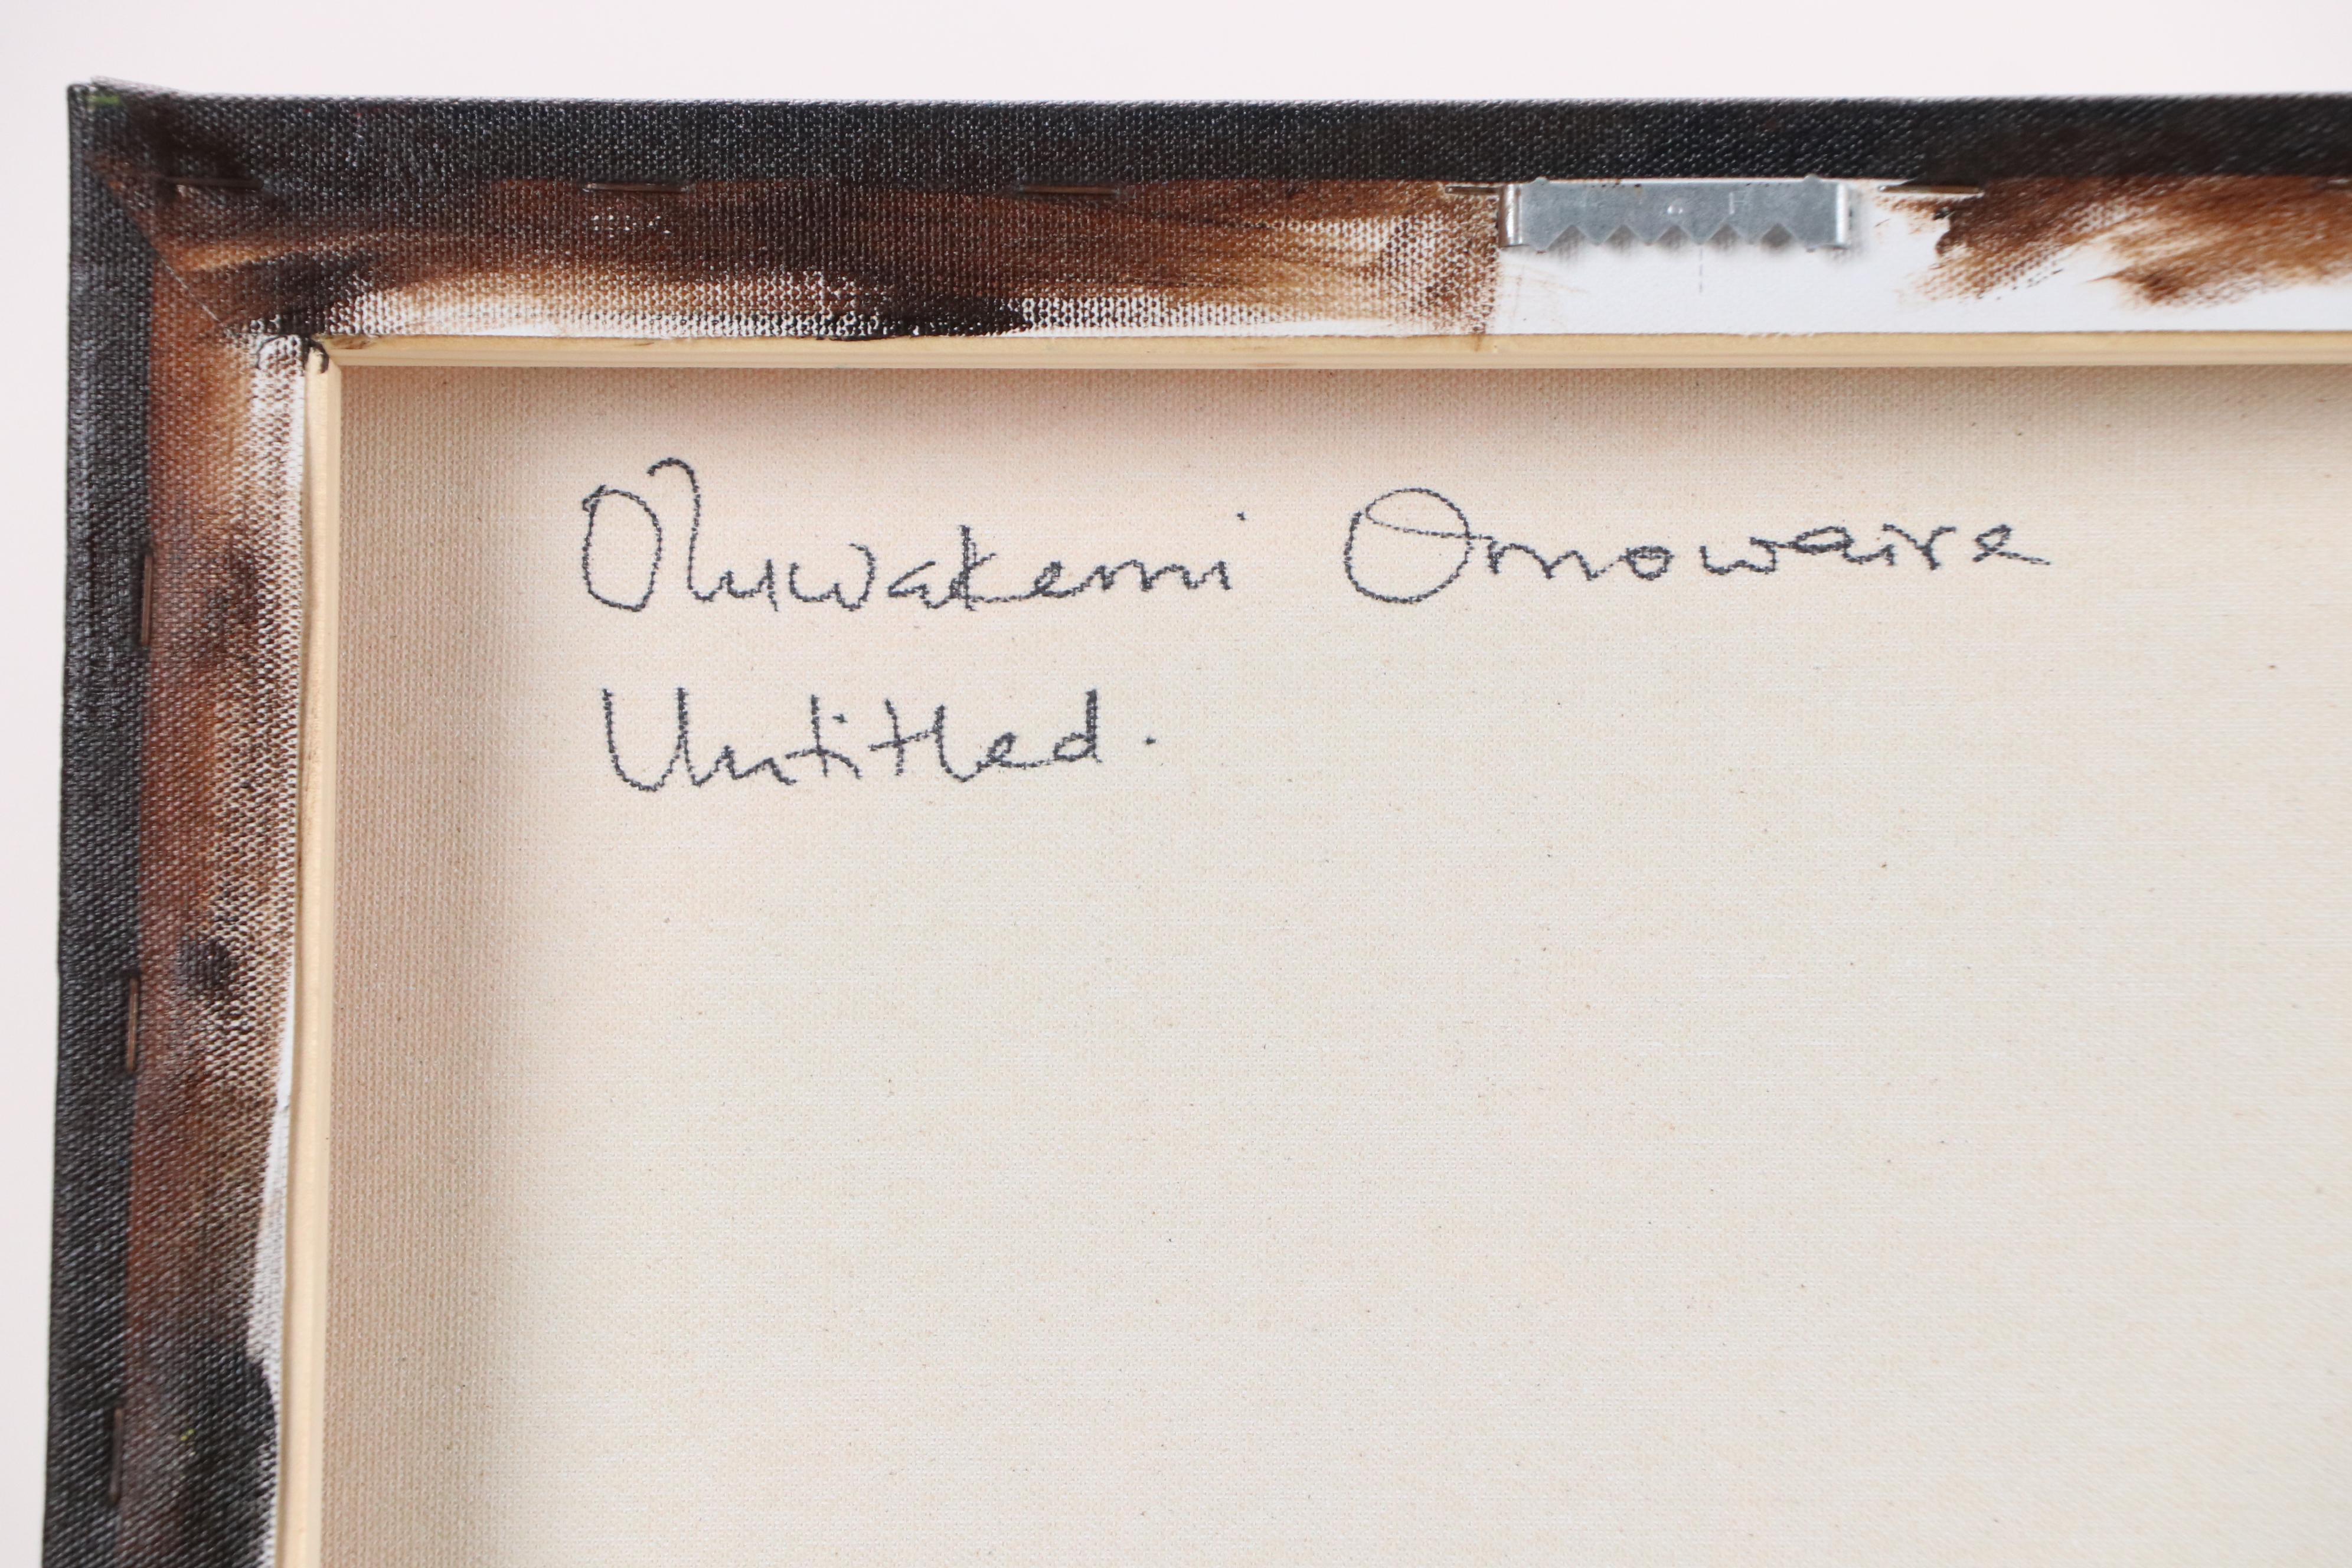 Oluwakemi Omowaire
Untitled.